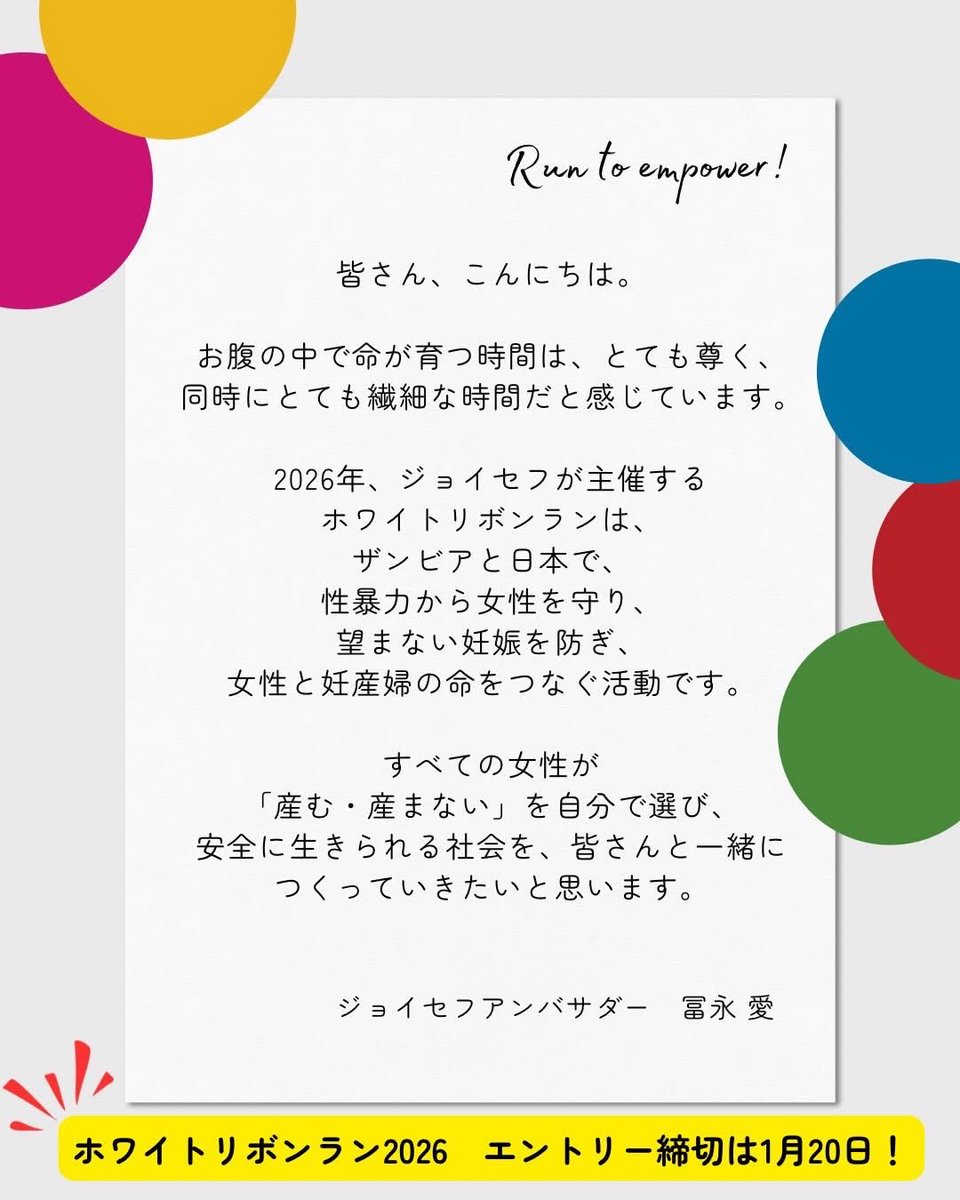 Run to empower!
皆さん、こんにちは。
お腹の中で命が育つ時間は、とても尊く、
同時にとても繊細な時間だと感じています。
2026年、ジョイセフが主催する
ホワイトリボンランは、
ザンビアと日本で、
性暴力から女性を守り、
望まない妊娠を防ぎ、
女性と妊産婦の命をつなぐ活動です。
すべての女性が
「産む・産まない」を自分で選び、
安全に生きられる社会を、皆さんと一緒に
つくっていきたいと思います。
ジョイセフアンバサダー　冨永 愛
ホワイトリボンラン2026　エントリー締切は1月20日！